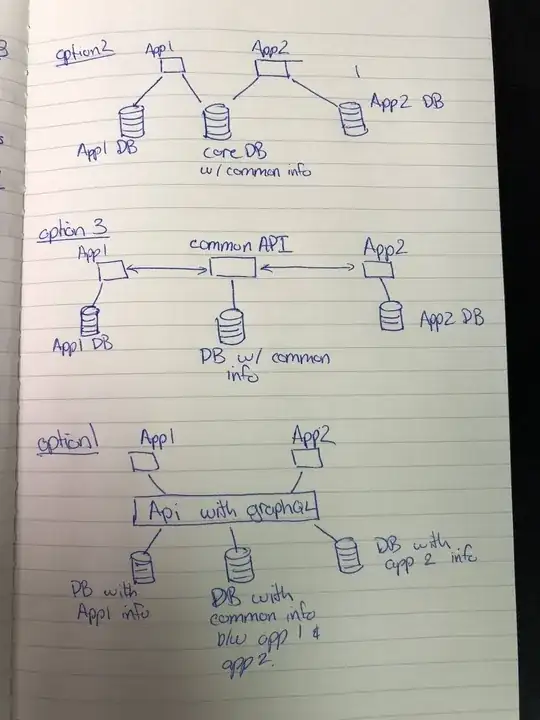 option2
App1
App2
App1 DB
core DB
w/ common info
App2 DB
option 3
App1
common API
App2
App1 DB
DB w/ common
info
App2 DB
option1
App1
App2
Api with graphQL
DB with
App1 info
DB with
common info
b/w app 1 &
app 2.
DB with
app 2 info